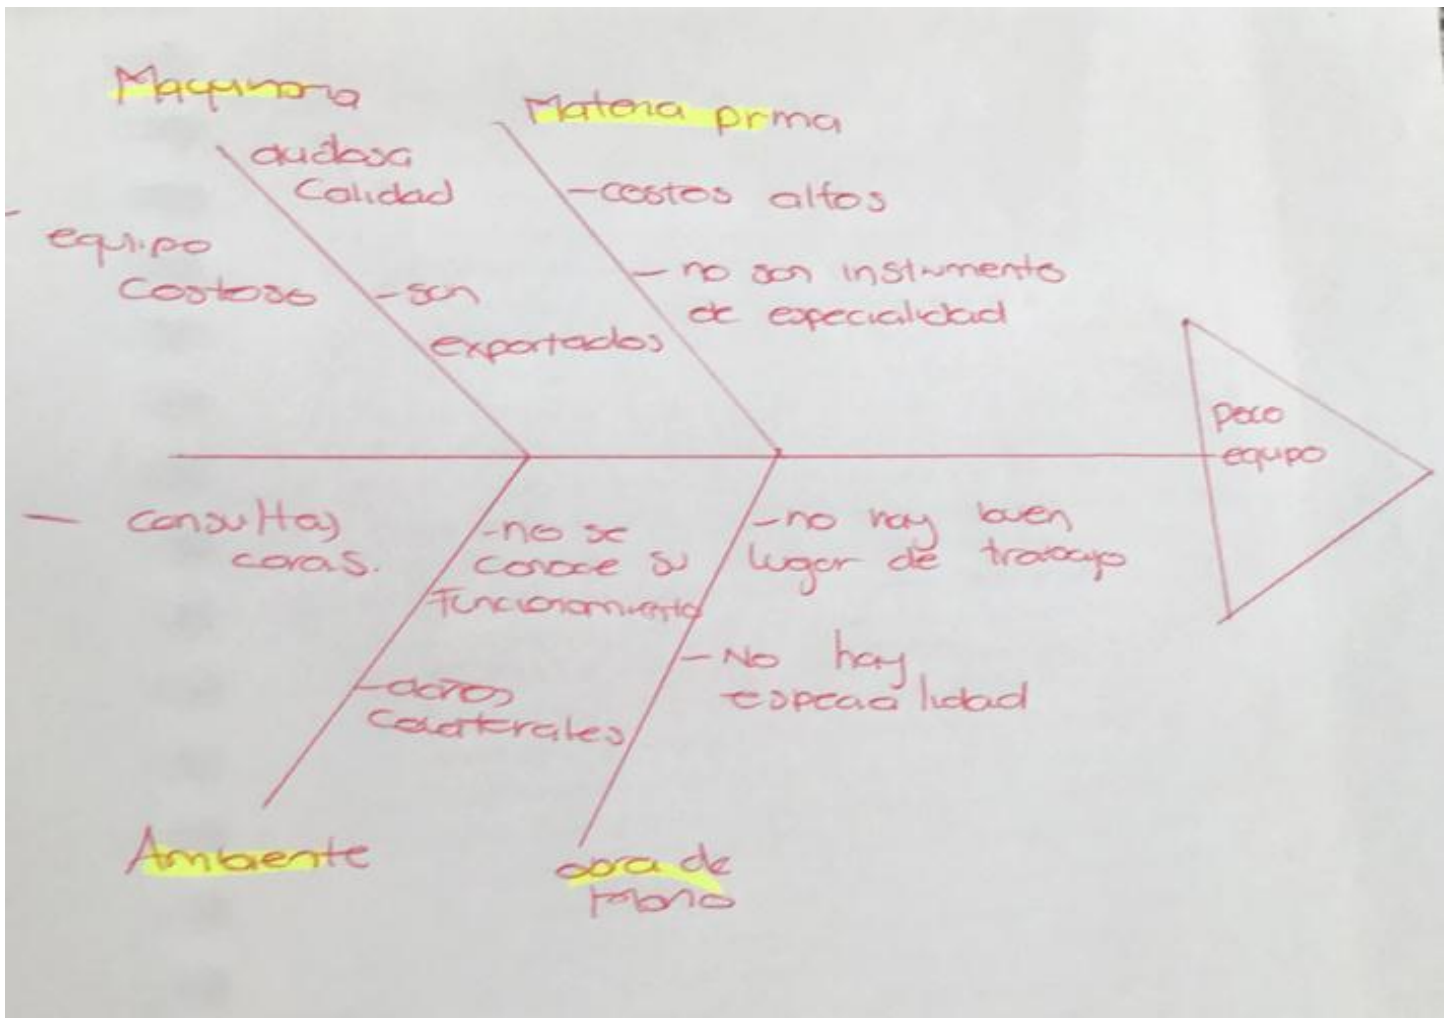 Maquinaria
dudosa
Calidad
- equipo
costoso
- son
exportados
Materia prma
- costos altos
- no son instrumento
de especialidad
poco
equipo
- consultas
caras.
- no se
conoce su
Funcionamiento
- daños
colaterales
Ambiente
- no hay buen
lugar de trabajo
- No hay
especialidad
obra de
Mano